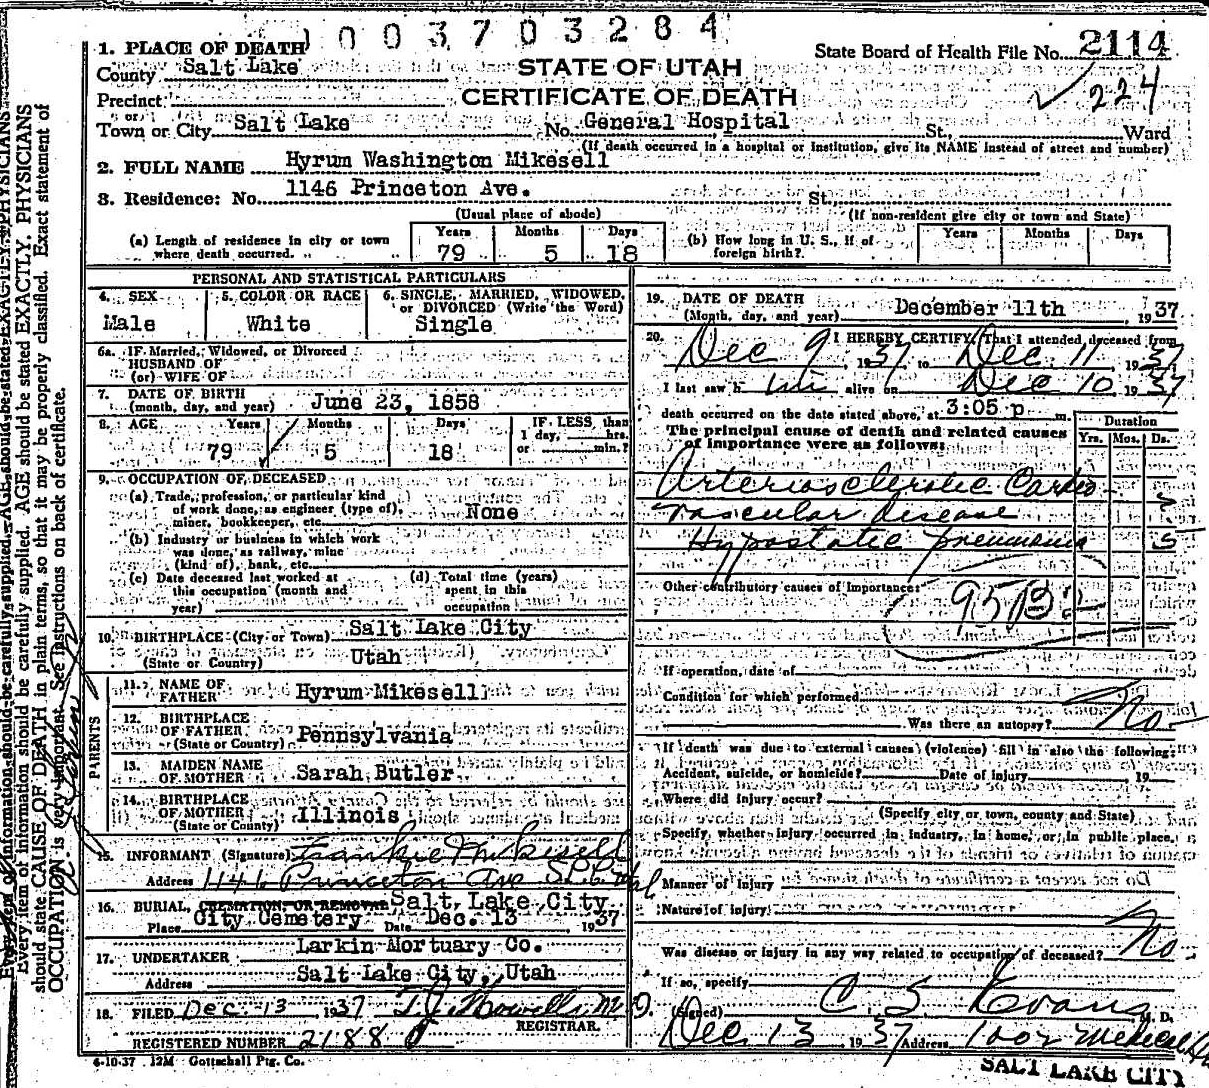 1003703284
1. PLACE OF DEATH
State Board of Health File No. 2114
County Salt Lake
STATE OF UTAH
224
Precinct
CERTIFICATE OF DEATH
or
Town or City Salt Lake No. General Hospital St., Ward
(If death occurred in a hospital or institution, give its NAME instead of street and number)
2. FULL NAME Hyrum Washington Mikesell
3. Residence: No. 1146 Princeton Ave. St.,
(Usual place of abode) (If non-resident give city or town and State)
(a) Length of residence in city or town where death occurred. Years 79 Months 5 Days 18
(b) How long in U. S., if of foreign birth? Years Months Days
PERSONAL AND STATISTICAL PARTICULARS
4. SEX Male
5. COLOR OR RACE White
6. SINGLE, MARRIED, WIDOWED, or DIVORCED (Write the Word) Single
6a. IF Married, Widowed, or Divorced
HUSBAND OF
(or) WIFE OF
7. DATE OF BIRTH
(month, day, and year) June 23, 1858
8. AGE Years 79 Months 5 Days 18
IF LESS than 1 day, hrs. or min.?
9. OCCUPATION OF DECEASED
(a) Trade, profession, or particular kind
of work done, as engineer (type of), None
miner, bookkeeper, etc.
(b) Industry or business in which work
was done, as railway, mine
(kind of), bank, etc.
(c) Date deceased last worked at
this occupation (month and
year)
(d) Total time (years)
spent in this
occupation
10. BIRTHPLACE (City or Town) Salt Lake City
(State or Country) Utah
PARENTS
11. NAME OF
FATHER Hyrum Mikesell
12. BIRTHPLACE
OF FATHER Pennsylvania
(State or Country)
13. MAIDEN NAME
OF MOTHER Sarah Butler
14. BIRTHPLACE
OF MOTHER Illinois
(State or Country)
15. INFORMANT (Signature) Frankie Mikesell
Address 1146 Princeton Ave
16. BURIAL, CREMATION, OR REMOVAL Salt Lake City
Place City Cemetery Date Dec. 13 1937
Larkin Mortuary Co.
17. UNDERTAKER
Address Salt Lake City, Utah
18. FILED Dec. 13 1937 T. J. Howells M.D.
REGISTRAR.
REGISTERED NUMBER 2188
4-10-37 12M Gottschall Ptg. Co.
19. DATE OF DEATH
(Month, day, and year) December 11th 1937
20. I HEREBY CERTIFY, That I attended deceased from
Dec 9, 1937, to Dec 11 1937
I last saw him alive on Dec 10 1937
death occurred on the date stated above, at 3:05 p m.
The principal cause of death and related causes
of importance were as follows:
Duration
Yrs. Mos. Ds.
Arteriosclerotic Cardio
vascular disease ?
Hypostatic pneumonia 5
Other contributory causes of importance:
If operation, date of
Condition for which performed
Was there an autopsy? No
If death was due to external causes (violence) fill in also the following:
Accident, suicide, or homicide? Date of injury 19
Where did injury occur?
(Specify city or town, county and State)
Specify whether injury occurred in industry, in home, or in public place.
Manner of Injury
Nature of injury
Was disease or injury in any way related to occupation of deceased? No
If so, specify
(Signed) C S Evans M. D.
Dec 13 1937 Address 1002 Medical
SALT LAKE CITY
Every item of information should be carefully supplied. AGE should be stated EXACTLY. PHYSICIANS
should state CAUSE OF DEATH in plain terms, so that it may be properly classified. Exact statement of
OCCUPATION is very important. See instructions on back of certificate.